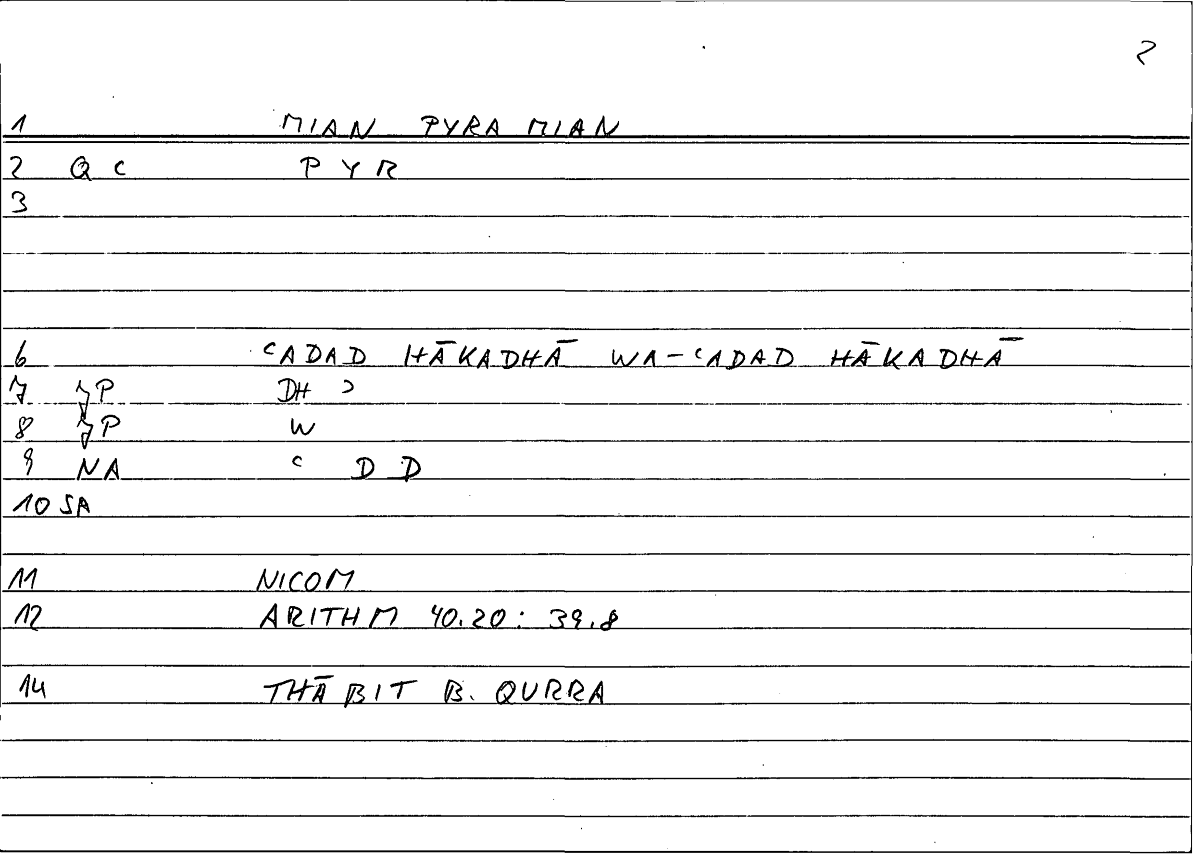 2
1 MIAN PYRA MIAN
2 QC PYR
3
6 ʿADAD HĀKADHĀ WA-ʿADAD HĀKADHĀ
7 JP DH ʾ
8 JP W
9 NA ʿ D D
10 SA
11 NICOM
12 ARITHM 40.20 : 39.8
14 THĀBIT B. QURRA